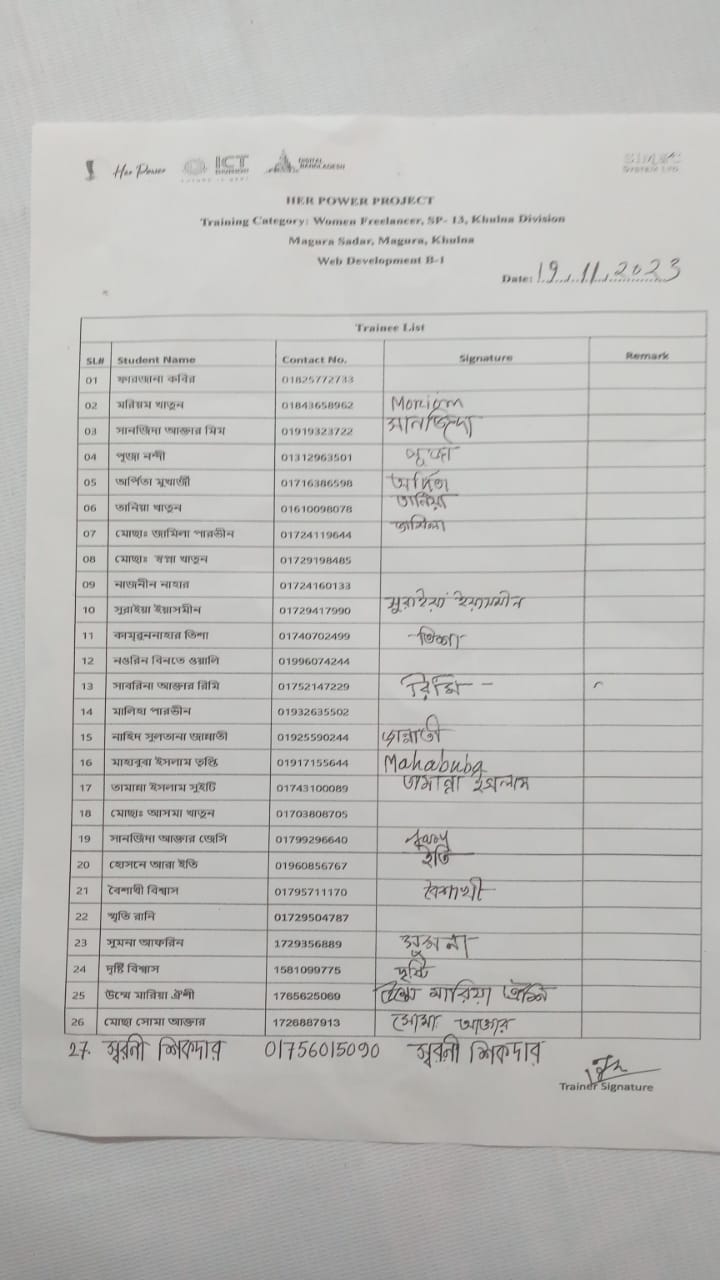 Her Power ICT DIVISION DIGITAL BANGLADESH SIMEC SYSTEM LTD.
HER POWER PROJECT
Training Category: Women Freelancer, SP- 13, Khulna Division
Magura Sadar, Magura, Khulna
Web Development B-1
Date: 19.11.2023
Trainee List
SL# Student Name Contact No. Signature Remark
01 ফারজানা কবির 01825772733
02 মরিয়ম খাতুন 01843658962 Moriom
03 সানজিদা আক্তার মিম 01919323722 সানজিদা
04 পুজা নন্দী 01312963501 পূজা
05 অর্পিতা মুখার্জী 01716386598 অর্পিতা
06 তানিয়া খাতুন 01610098078 তানিয়া
07 মোছাঃ জামিলা পারভীন 01724119644 জামিলা
08 মোছাঃ স্বপ্না খাতুন 01729198485
09 নাজনীন নাহার 01724160133
10 সুরাইয়া ইয়াসমীন 01729417990 সুরাইয়া ইয়াসমীন
11 কামরুননাহার তিশা 01740702499 তিশা
12 নওরিন বিনতে ওয়ালি 01996074244
13 সাবরিনা আক্তার রিমি 01752147229 রিমি
14 মালিহা পারভীন 01932635502
15 নাহিদ সুলতানা জান্নাতী 01925590244 জান্নাতী
16 মাহাবুবা ইসলাম তৃপ্তি 01917155644 Mahabuba
17 তামান্না ইসলাম সুইটি 01743100089 তামান্না ইসলাম
18 মোছাঃ আসমা খাতুন 01703808705
19 সানজিদা আক্তার জেসি 01799296640
20 হোসনে আরা ইতি 01960856767 ইতি
21 বৈশাখী বিশ্বাস 01795711170 বৈশাখী
22 স্মৃতি রানি 01729504787
23 সুমনা আফরিন 1729356889 সুমনা
24 দৃষ্টি বিশ্বাস 1581099775 দৃষ্টি
25 উম্মে মারিয়া ঐশী 1765625069 উম্মে মারিয়া ঐশি
26 মোছা সোমা আক্তার 1726887913 সোমা আক্তার
27. সুবর্না শিকদার 01756015090 সুবর্না শিকদার
Trainer Signature